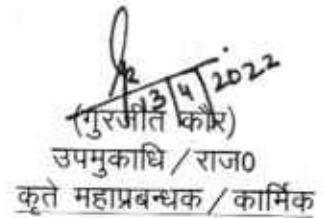 13/4/2022
(गुरजीत कौर)
उपमुकाधि / राज0
कृते महाप्रबन्धक / कार्मिक